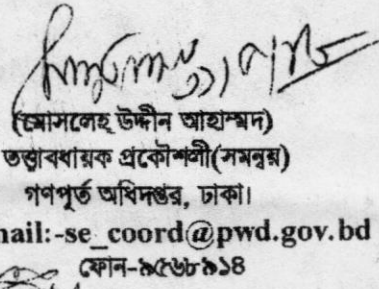 (মোসলেহ উদ্দীন আহাম্মদ)
তত্ত্বাবধায়ক প্রকৌশলী(সমন্বয়)
গণপূর্ত অধিদপ্তর, ঢাকা।
nail:-se_coord@pwd.gov.bd
ফোন-৯৫৬৮৯১৪